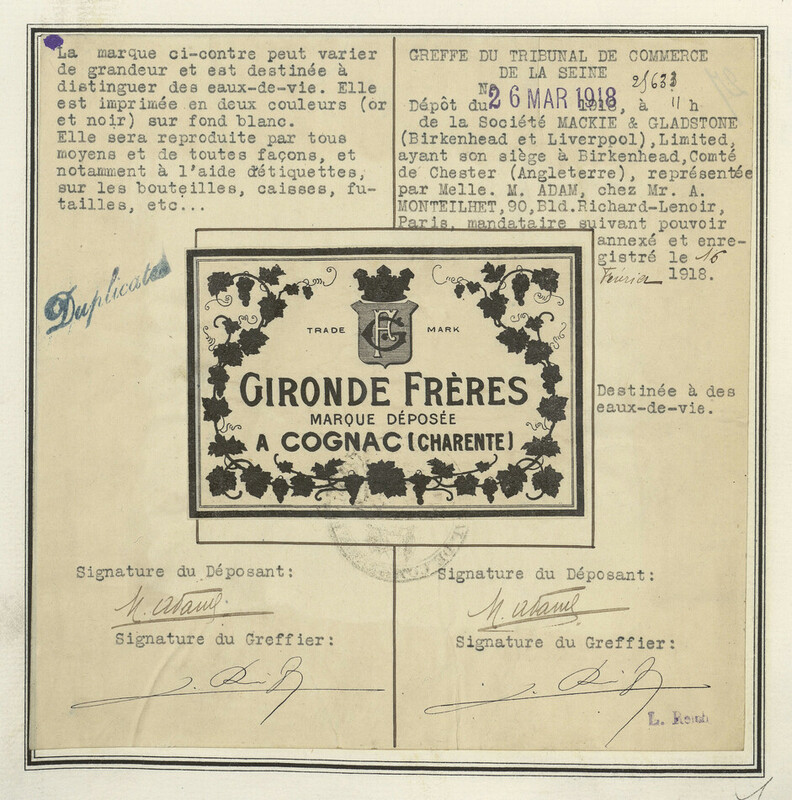 La marque ci-contre peut varier
de grandeur et est destinée à
distinguer des eaux-de-vie. Elle
est imprimée en deux couleurs (or
et noir) sur fond blanc.
Elle sera reproduite par tous
moyens et de toutes façons, et
notamment à l'aide d'étiquettes,
sur les bouteilles, caisses, fu-
tailles, etc...
Duplicata
GREFFE DU TRIBUNAL DE COMMERCE
DE LA SEINE
No 25633
Dépôt du 26 MAR 1918, à 11 h
de la Société MACKIE & GLADSTONE
(Birkenhead et Liverpool),Limited,
ayant son siège à Birkenhead,Comté
de Chester (Angleterre), représentée
par Melle. M. ADAM, chez Mr. A.
MONTEILHET,90,Bld.Richard-Lenoir,
Paris, mandataire suivant pouvoir
annexé et enre-
gistré le 16
Février 1918.
TRADE MARK
GF
GIRONDE FRÈRES
MARQUE DÉPOSÉE
A COGNAC (CHARENTE)
Destinée à des
eaux-de-vie.
Signature du Déposant:
M. Adam
Signature du Greffier:
Signature du Déposant:
M. Adam
Signature du Greffier: